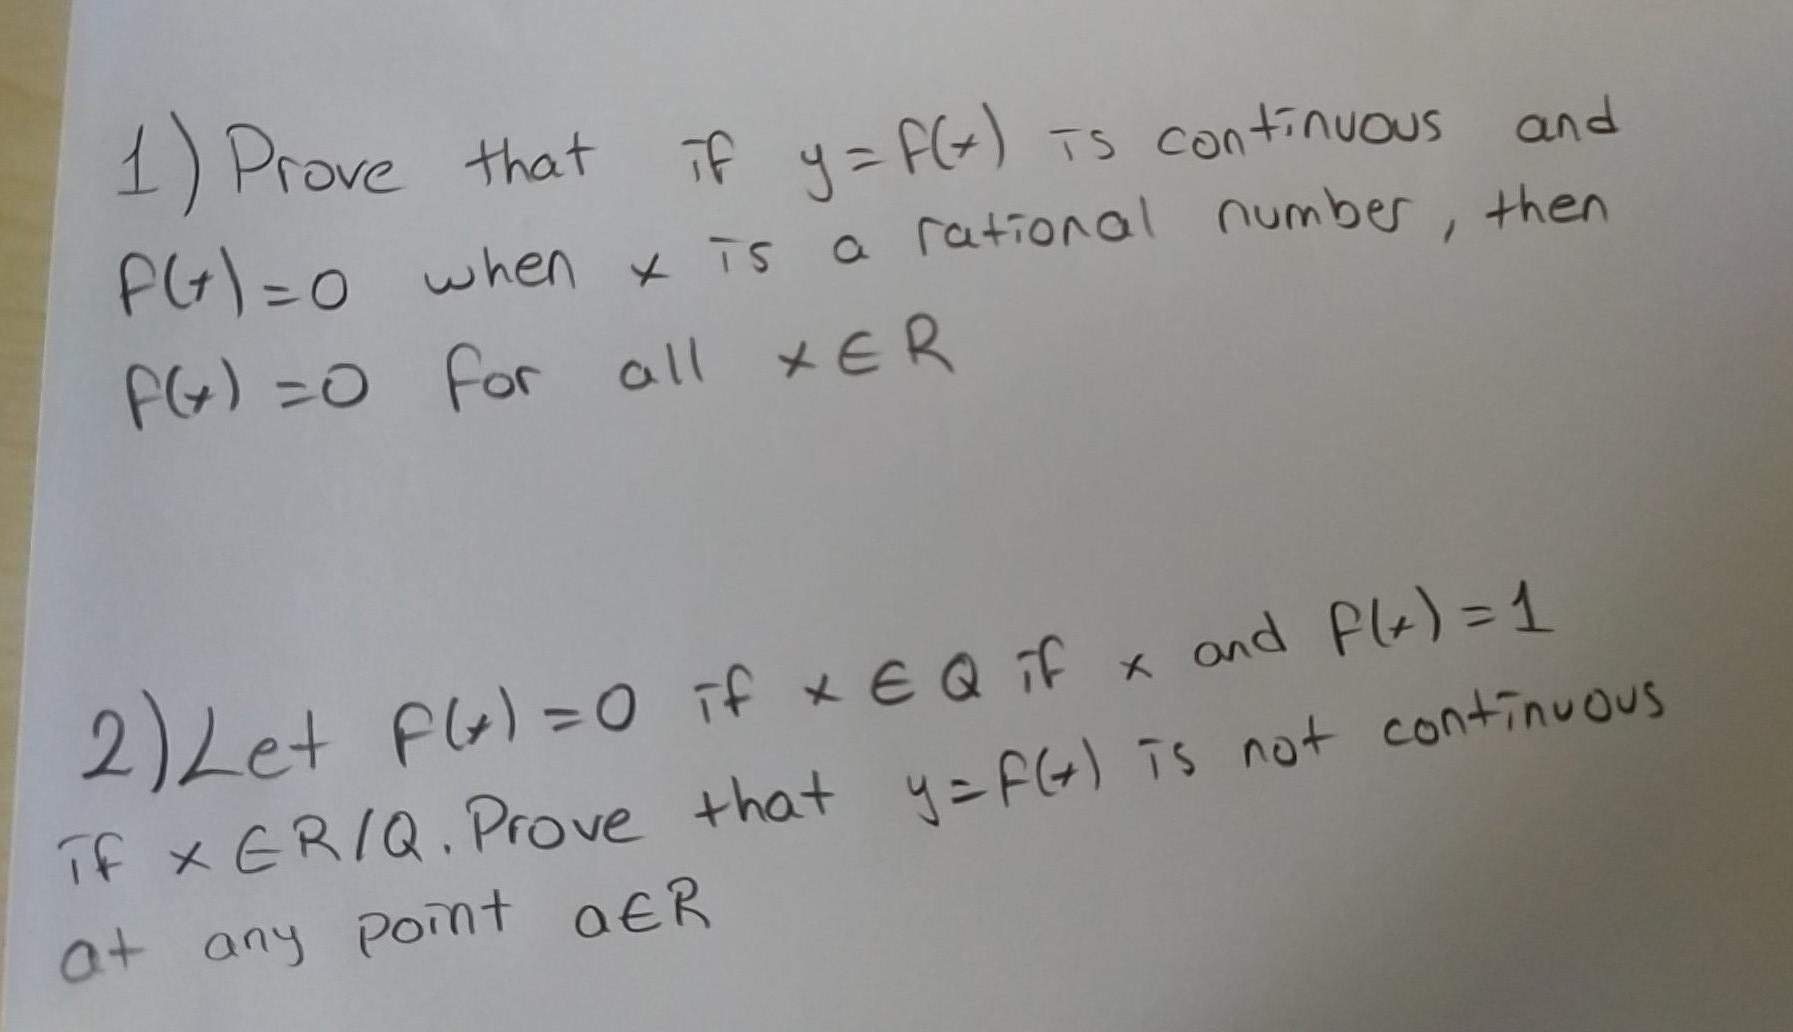 1) Prove that if y=f(x) is continuous and
f(x)=0 when x is a rational number, then
f(x)=0 for all x∈R
2) Let f(x)=0 if x∈Q if x and f(x)=1
if x∈R/Q. Prove that y=f(x) is not continuous
at any point a∈R